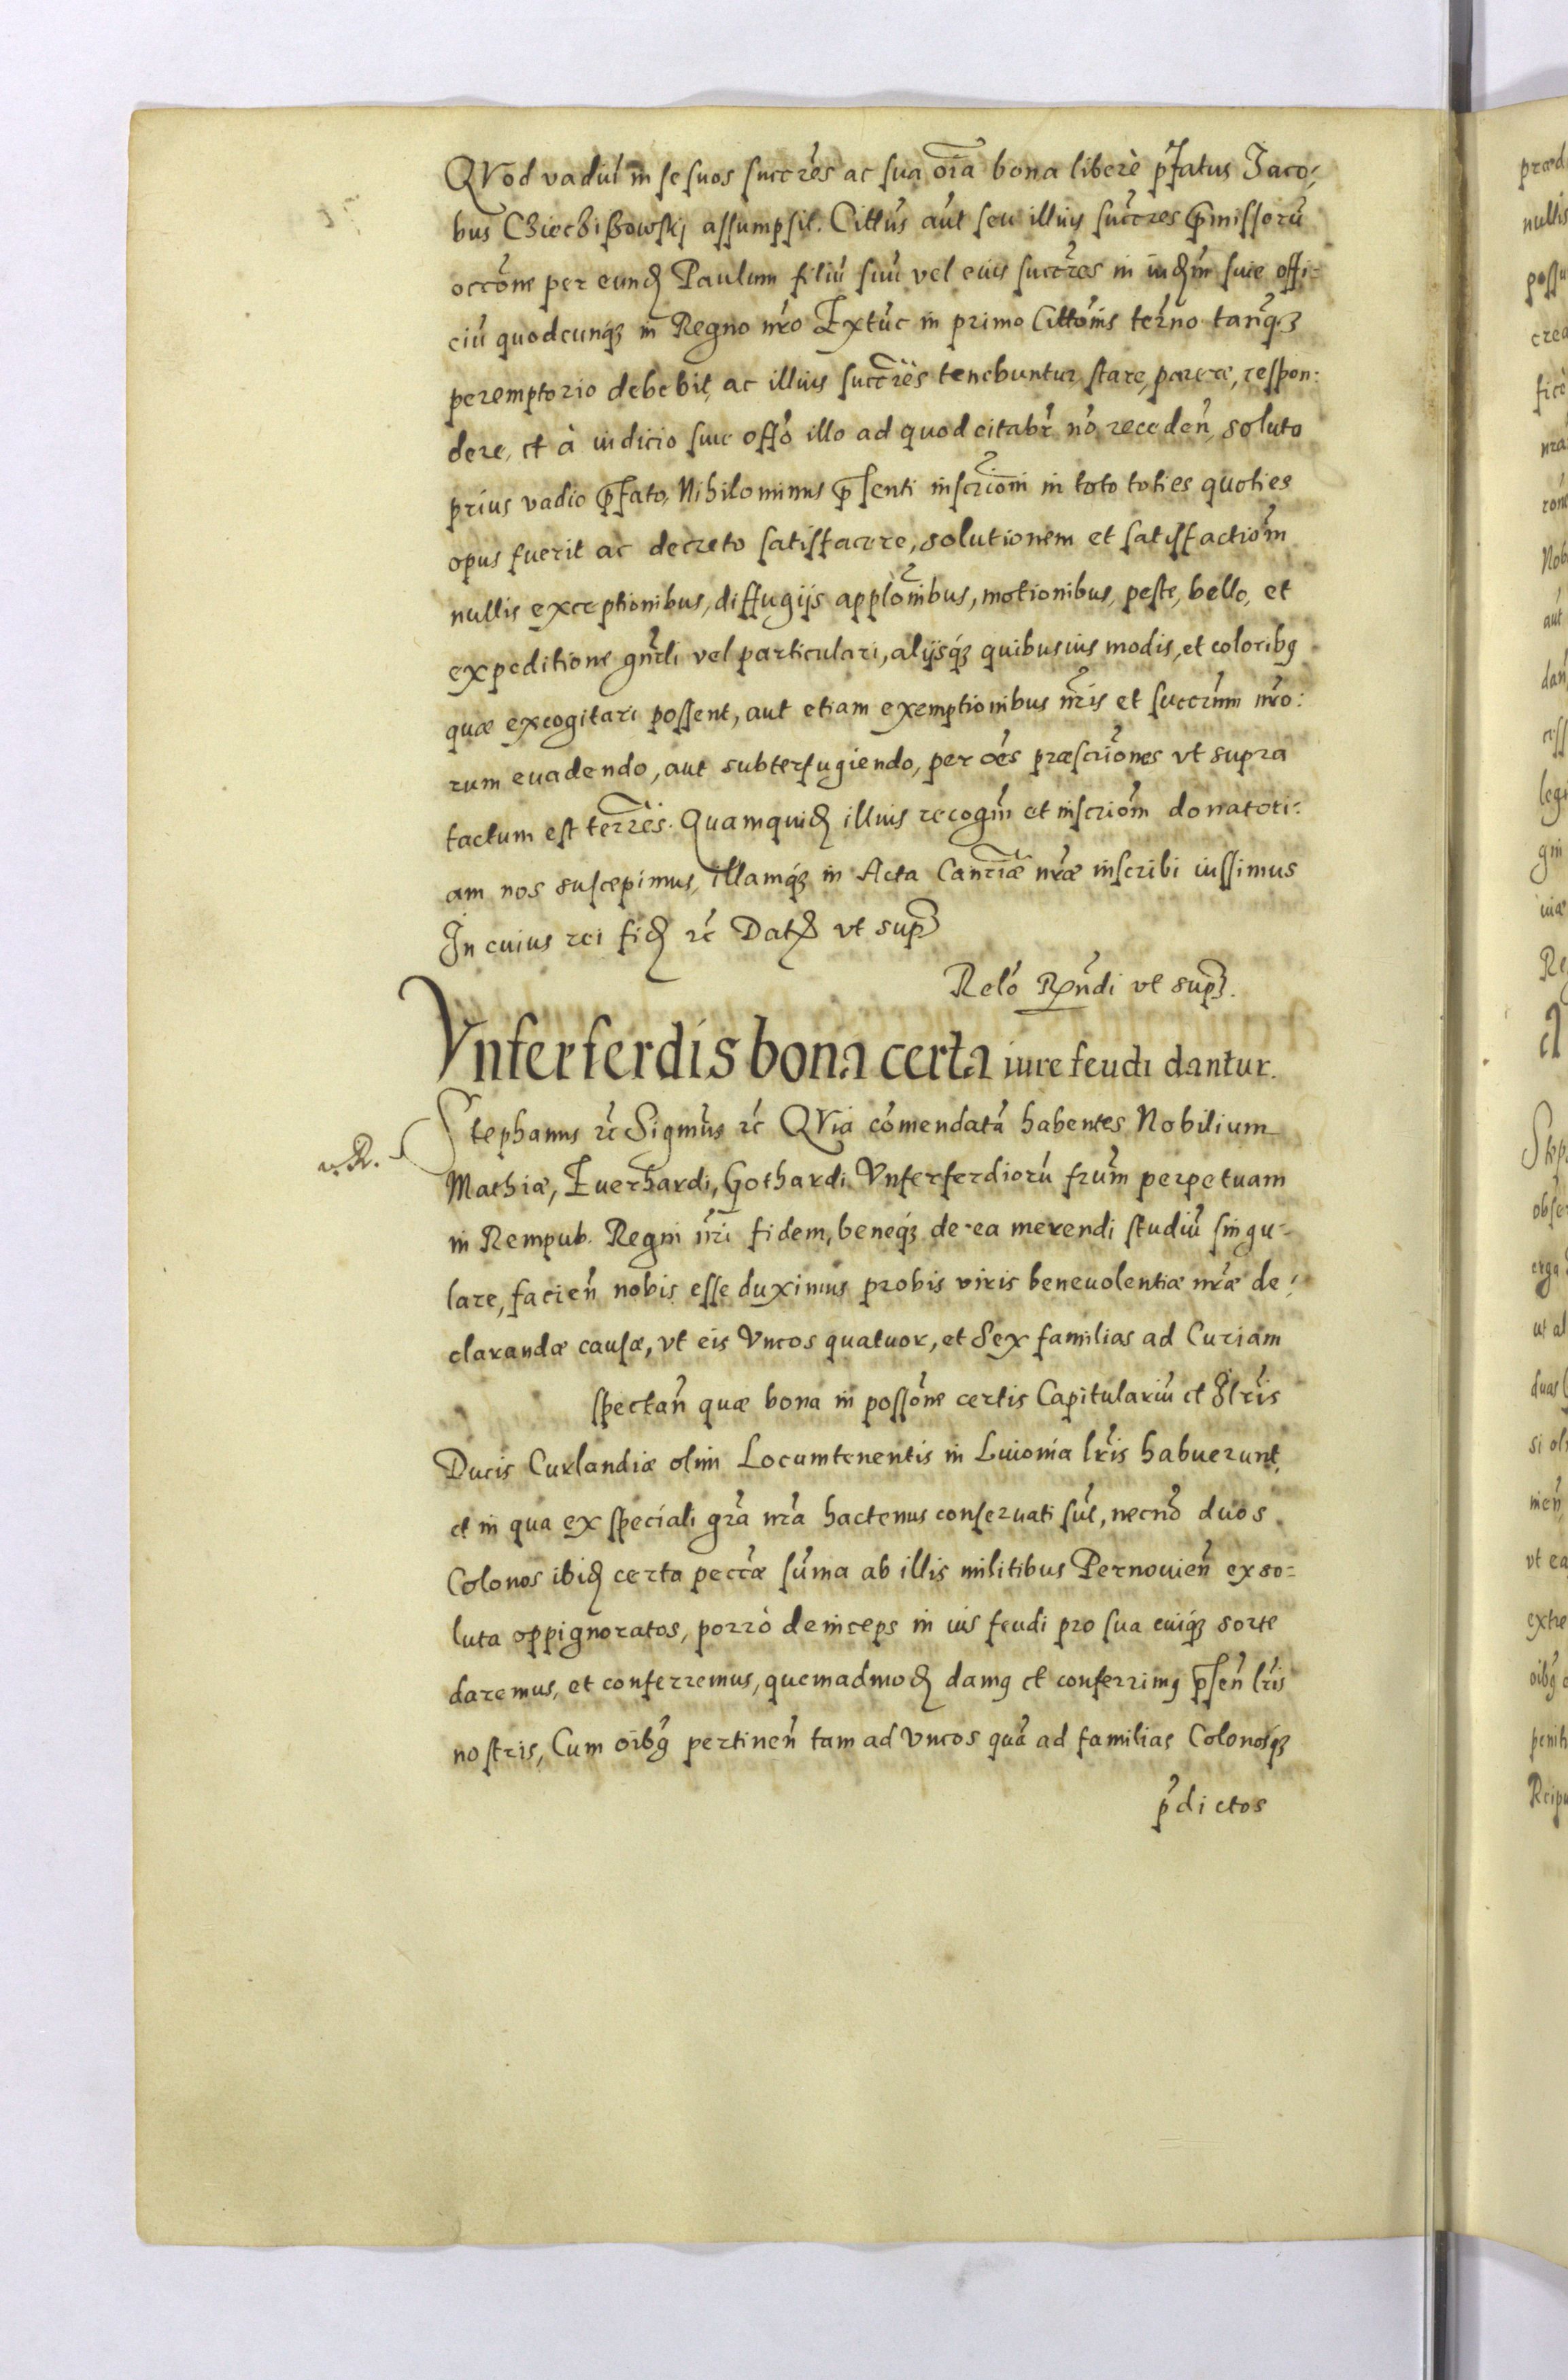 QVod vadiũ in se suos succr̃es ac sua oĩa bona liberè p̃fatus Jaco:
bus Chiechißowskj assumpsit. Cittũs aũt seu illius succr̃es p̃missorũ
occõne per eund Paulum filiũ suũ vel eius succr̃es in iud̃m siue offi=
ciũ quodcunq; in Regno nr̃o Extũc in primo Cittõnis ter̃no tanq̃
peremptorio debebit, ac illius succr̃es tenebuntur stare, parere, respon:
dere, et à iudicio siue offõ illo ad quod citabr̃ nõ receden̄, soluto
prius vadio p̃fato, Nihilominus p̃senti inscrĩoni in toto toties quoties
opus fuerit ac decreto satisfacere, solutionem et satisfactiom̃
nullis exceptionibus, diffugijs applõnibus, motionibus, peste, bello, et
expeditione gnr̃li vel particulari, alijsq; quibusuis modis, et coloribus
quæ excogitari possent, aut etiam exemptionibus nr̃is et succr̃um nr̃o:
rum euadendo, aut subterfugiendo, per oẽs præscriõnes vt supra
tactum est terr̃es. Quamquid illius recogm̃ et inscriom̃ donatori:
am nos suscepimus, illamq; in Acta Canc̃riæ nr̃æ inscribi iussimus
In cuius rei fid ꝛc̃ Dat vt sup
Relõ Rñdi vt sup.
Vnferferdis bona certa iure feudi dantur.
Stephanus ꝛc̃ Sigm̃us ꝛc̃ QVia cõmendatã habentes Nobilium
Mathiæ, Euerhardi, Gothardi Vnferferdiorũ frũm perpetuam
in Rempub. Regni nr̃i fidem, beneq; de ea merendi studiũ singu=
lare, facien̄ nobis esse duximus probis viris beneuolentiæ nr̃æ de:
clarandæ causæ, vt eis Vncos quatuor, et Sex familias ad Curiam
spectan̄ quæ bona in possõne certis Capitulariũ et Illr̃is
Ducis Curlandiæ olim Locumtenentis in Liuonia lr̃is habuerunt,
et in qua ex speciali gr̃a nr̃a hactenus conseruati sũt, necnõ duos
Colonos ibid certa pecc̃æ sũma ab illis militibus Pernouien̄ exso=
luta oppignoratos, porrò deinceps in ius feudi pro sua cuiq; sorte
daremus, et conferremus, quemadmod damus et conferrimus p̃sen̄ lr̃is
nostris, Cum oĩbus pertinen̄ tam ad Vncos quã ad familias Colonosq;
p̃dictos